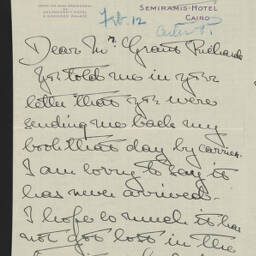 SEMIRAMIS-HOTEL
CAIRO
Feb. 12
Dear Mr Grant Richards
You told me in your
letter that you were
sending me back my
book that day by carrier.
I am sorry to say it
has never arrived.
I hope so much it has
not got lost in the